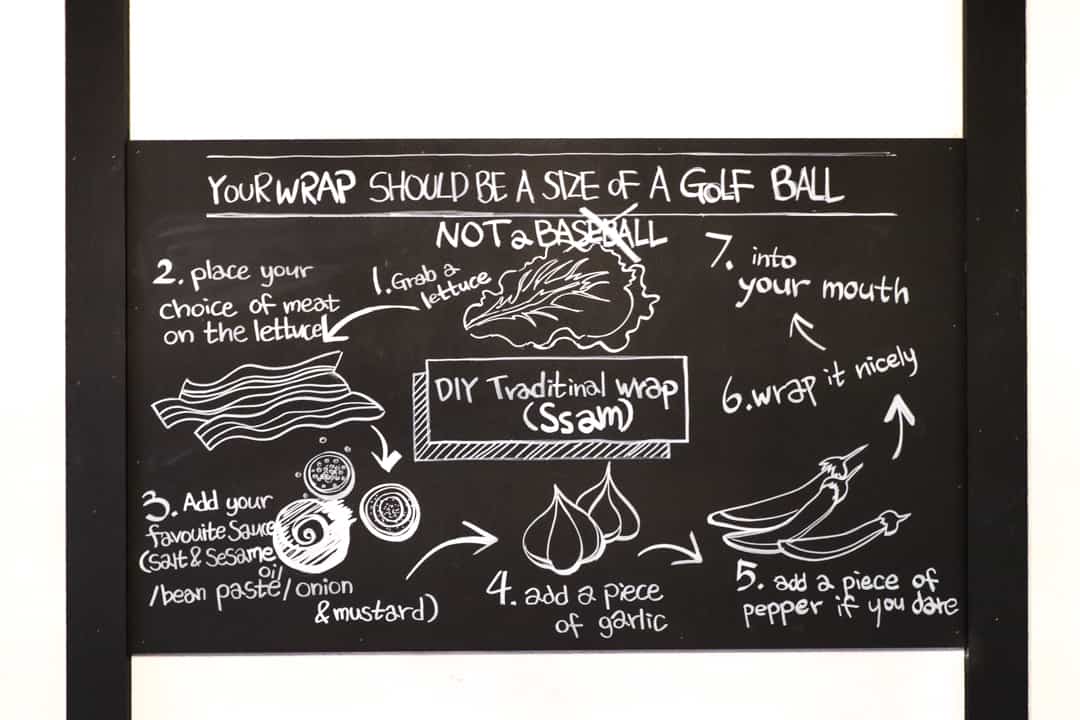 YOUR WRAP SHOULD BE A SIZE OF A GOLF BALL
NOT a BASEBALL
1. Grab a
lettuce
2. place your
choice of meat
on the lettuce
DIY Traditinal wrap
(Ssam)
3. Add your
favouite Sauce
(salt & Sesame
oil
/bean paste/onion
& mustard)
4. add a piece
of garlic
5. add a piece of
pepper if you dare
6. wrap it nicely
7. into
your mouth